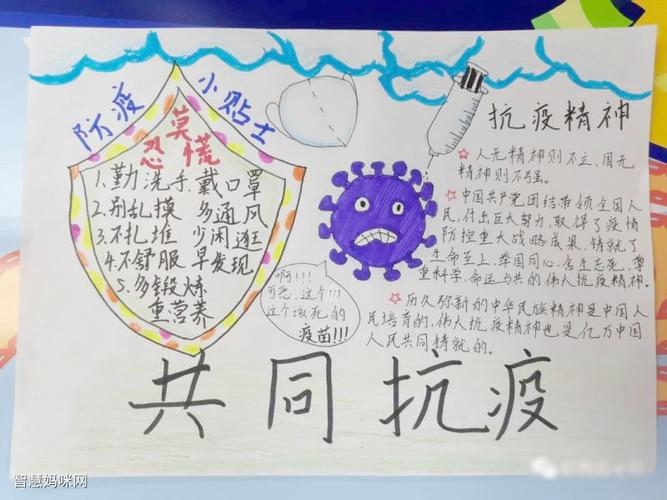 防疫
小贴士
莫
恐慌
1.勤洗手.戴口罩
2.别乱摸 多通风
3.不扎堆 少闲逛
4.不舒服早发现
5.多锻炼
重营养
啊!!!
可恶,这个!!!
这个该死的
疫苗!!!
抗疫精神
☆人无精神则不立,国无
精神则不强。
☆中国共产党团结带领全国人
民,付出巨大努力,取得了疫情
防控重大战略成果,铸就了
生命至上、举国同心、舍生忘死、尊
重科学、命运与共的伟大抗疫精神。
☆历久弥新的中华民族精神是中国人
民培育的,伟大抗疫精神也是亿万中国
人民共同铸就的。
共同抗疫
智慧妈咪网